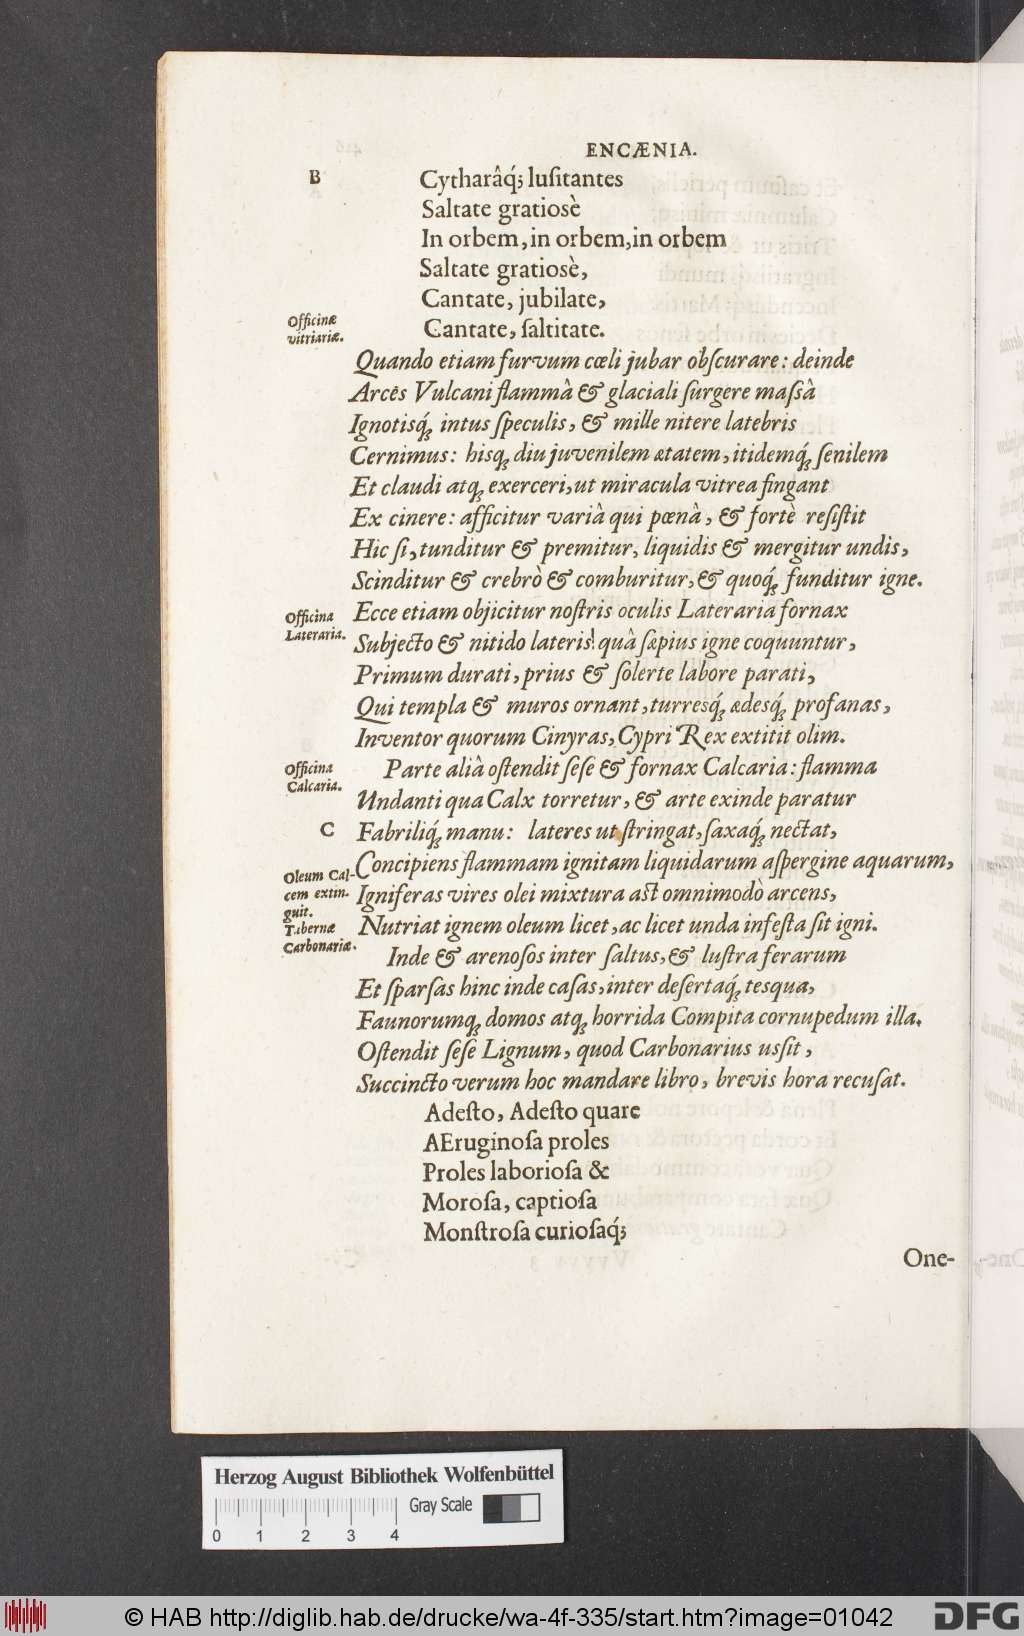 ENCÆNIA.
B
Cytharâq́; luſitantes
Saltate gratiosè
In orbem, in orbem, in orbem
Saltate gratiosè,
Cantate, jubilate,
Officinæ
vitriariæ.
Cantate, ſaltitate.
Quando etiam furvum cœli jubar obſcurare: deinde
Arcēs Vulcani flammâ & glaciali ſurgere maſsâ
Ignotisq́; intus ſpeculis, & mille nitere latebris
Cernimus: hisq; diu juvenilem ætatem, itidemq́; ſenilem
Et claudi atq; exerceri, ut miracula vitrea fingant
Ex cinere: afficitur variâ qui pœnâ, & fortè reſiſtit
Hic ſi, tunditur & premitur, liquidis & mergitur undis,
Scinditur & crebrò & comburitur, & quoq́; funditur igne.
Officina
Lateraria.
Ecce etiam objicitur noſtris oculis Lateraria fornax
Subjecto & nitido lateris! quâ ſæpius igne coquuntur,
Primum durati, prius & ſolerte labore parati,
Qui templa & muros ornant, turresq́; ædesq́; profanas,
Inventor quorum Cinyras, Cypri Rex extitit olim.
Officina
Calcaria.
Parte aliâ oſtendit ſeſe & fornax Calcaria: flamma
Undanti qua Calx torretur, & arte exinde paratur
C
Fabriliq́; manu: lateres ut ſtringat, ſaxaq́; nectat,
Concipiens flammam ignitam liquidarum aſpergine aquarum,
Oleum Cal-
cem extin.
guit.
Igniferas vires olei mixtura aſt omnimodò arcens,
Nutriat ignem oleum licet, ac licet unda infeſta ſit igni.
Tabernæ
Carbonariæ.
Inde & arenoſos inter ſaltus, & luſtra ferarum
Et ſparſas hinc inde caſas, inter deſertaq́; tesqua,
Faunorumq; domos atq; horrida Compita cornupedum illa,
Oſtendit ſeſe Lignum, quod Carbonarius ussit,
Succincto verum hoc mandare libro, brevis hora recuſat.
Adeſto, Adeſto quare
AEruginoſa proles
Proles laborioſa &
Moroſa, captioſa
Monſtroſa curioſaq́;
One-
Herzog August Bibliothek Wolfenbüttel
Gray Scale
0 1 2 3 4
© HAB http://diglib.hab.de/drucke/wa-4f-335/start.htm?image=01042
DFG